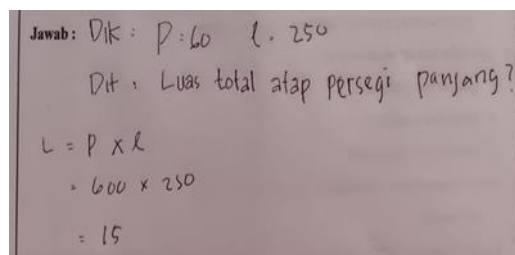 Jawab : Dik : P : 60 l . 250
Dit : Luas total atap persegi panjang?
L = P x l
= 600 x 250
= 15